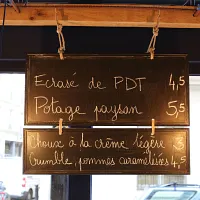 Ecrasé de PDT 4,5
Potage paysan 5,5
Choux à la crème légère 3
Crumble pommes caramélisées 4,5